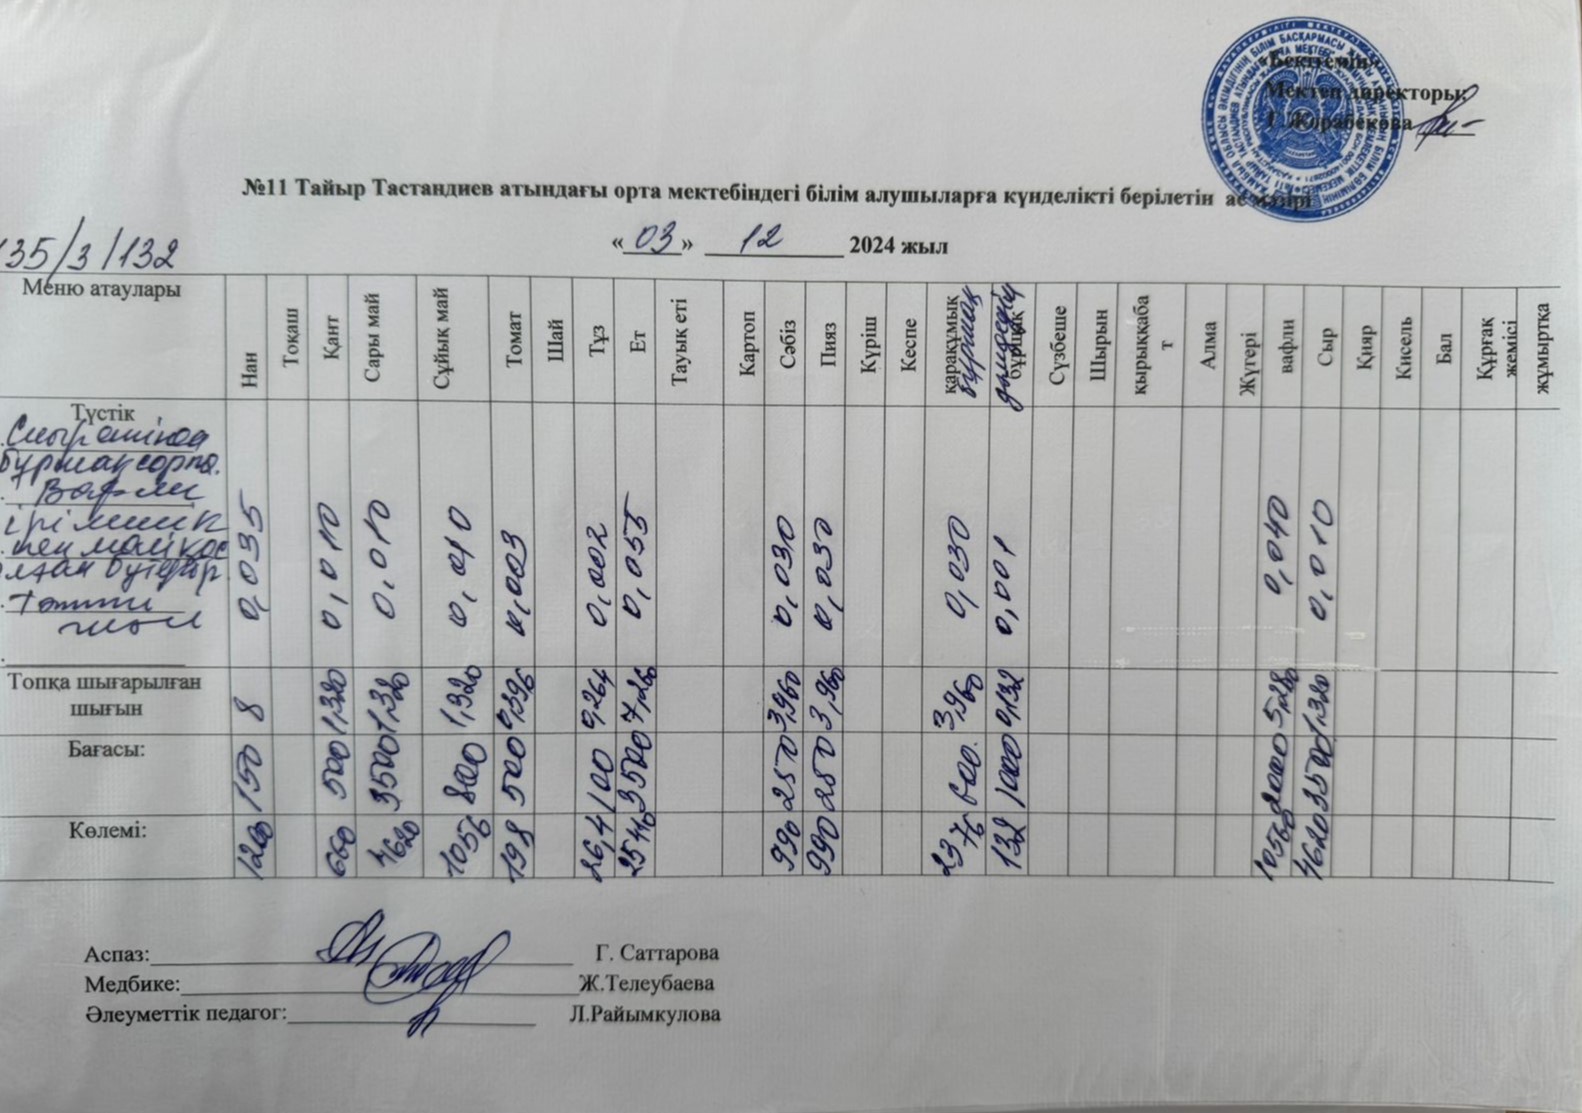 «Бекітемін»
Мектеп директоры:
Г. Жорабекова
№11 Тайыр Тастандиев атындағы орта мектебіндегі білім алушыларға күнделікті берілетін ас мәзірі
«03» 12 2024 жыл
135/3/132
Меню атаулары Нан Тоқаш Қант Сары май Сұйық май Томат Шай Тұз Ет Тауық еті Картоп Сәбіз Пияз Күріш Кеспе қарақұмық бұршақ бұршақ Сүзбеше Шырын қырыққабат Алма Жүгері вафли Сыр Қияр Кисель Бал Құрғақ жемісі жұмыртқа
Түстік
Сиыр етінен
бұршақ сорпа.
Вафли
ірімшік
пен май қос
ылған бутерброд
Тәтті
шай
0,035 0,010 0,010 0,010 0,003 0,002 0,055 0,030 0,030 0,030 0,001 0,040 0,010
Топқа шығарылған шығын 8 1,320 1,320 1,320 0,396 0,264 7,260 3,960 3,960 3,960 0,132 5,280 1,320
Бағасы: 150 500 3500 800 500 100 3500 250 250 600 1000 2000 3500
Көлемі: 1200 660 4620 1056 198 26,4 25410 990 990 2376 132 10560 4620
Аспаз: Г. Саттарова
Медбике: Ж.Телеубаева
Әлеуметтік педагог: Л.Райымкулова